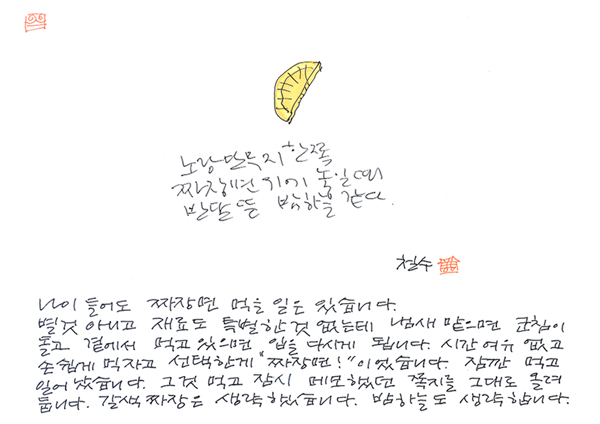 노랑단무지 한쪽
짜장면위에 놓일때
반달뜬 밤하늘 같다.
철수
나이 들어도 짜장면 먹을 일은 있습니다.
별것 아니고 재료도 특별한 것 없는데 냄새 맡으면 군침이
돌고 곁에서 먹고 있으면 입을 다시게 됩니다. 시간 여유 없고
손쉽게 먹자고 선택한게 "짜장면!"이었습니다. 잠깐 먹고
일어 났습니다. 그것 먹고 잠시 메모했던 쪽지를 그대로 올려
둡니다. 갈색짜장은 생략했습니다. 밤하늘도 생략합니다.